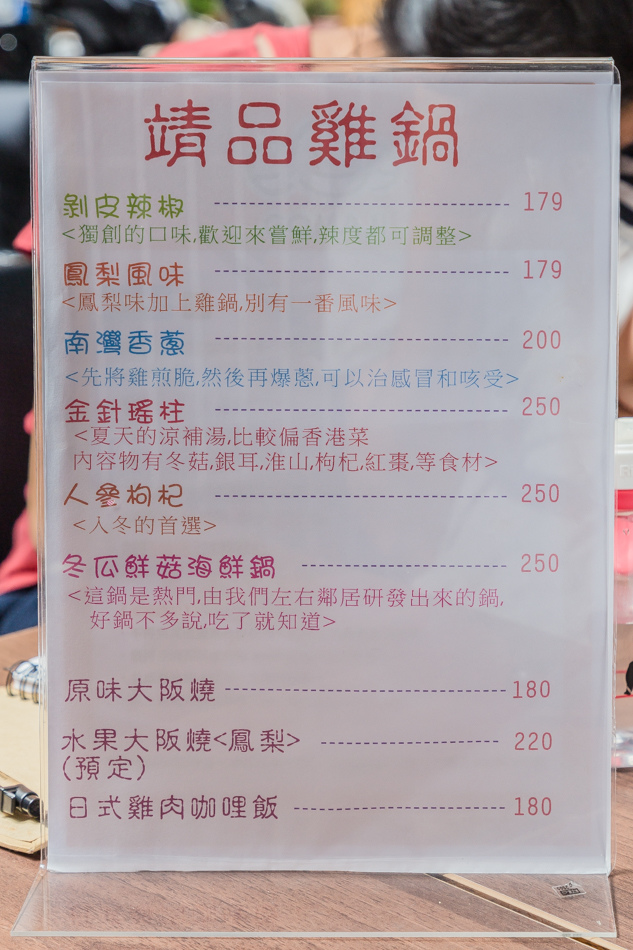 靖品雞鍋
剝皮辣椒 ------------------------ 179
<獨創的口味,歡迎來嘗鮮,辣度都可調整>
鳳梨風味 ------------------------ 179
<鳳梨味加上雞鍋,別有一番風味>
南灣香蔥 ------------------------ 200
<先將雞煎脆,然後再爆蔥,可以治感冒和咳受>
金針瑤柱 ------------------------ 250
<夏天的涼補湯,比較偏香港菜
內容物有冬菇,銀耳,淮山,枸杞,紅棗,等食材>
人參枸杞 ------------------------ 250
<入冬的首選>
冬瓜鮮菇海鮮鍋 ---------------- 250
<這鍋是熱門,由我們左右鄰居研發出來的鍋,
好鍋不多說,吃了就知道>
原味大阪燒 ---------------------- 180
水果大阪燒<鳳梨> -------------- 220
(預定)
日式雞肉咖哩飯 ---------------- 180